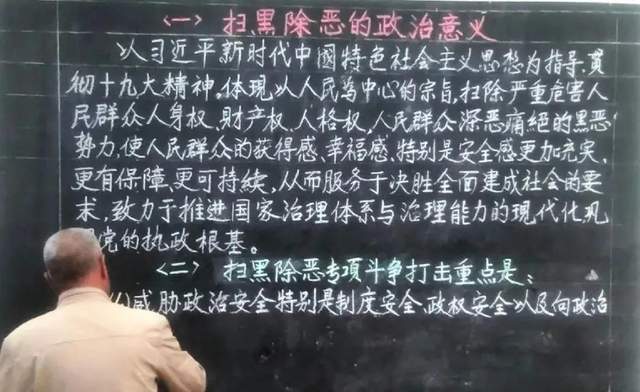 <一> 扫黑除恶的政治意义
以习近平新时代中國特色社会主义思想为指导,贯
彻十九大精神。体现以人民为中心的宗旨,扫除严重危害人
民群众人身权、财产权、人格权,人民群众深恶痛絕的黑恶
势力,使人民群众的获得感、幸福感、特别是安全感更加充实、
更有保障、更可持续,从而服务于决胜全面建成社会的要
求,致力于推进国家治理体系与治理能力的现代化,巩
党的执政根基。
<二> 扫黑除恶专项斗争打击重点是:
(1)威胁政治安全特别是制度安全、政权安全以及向政治